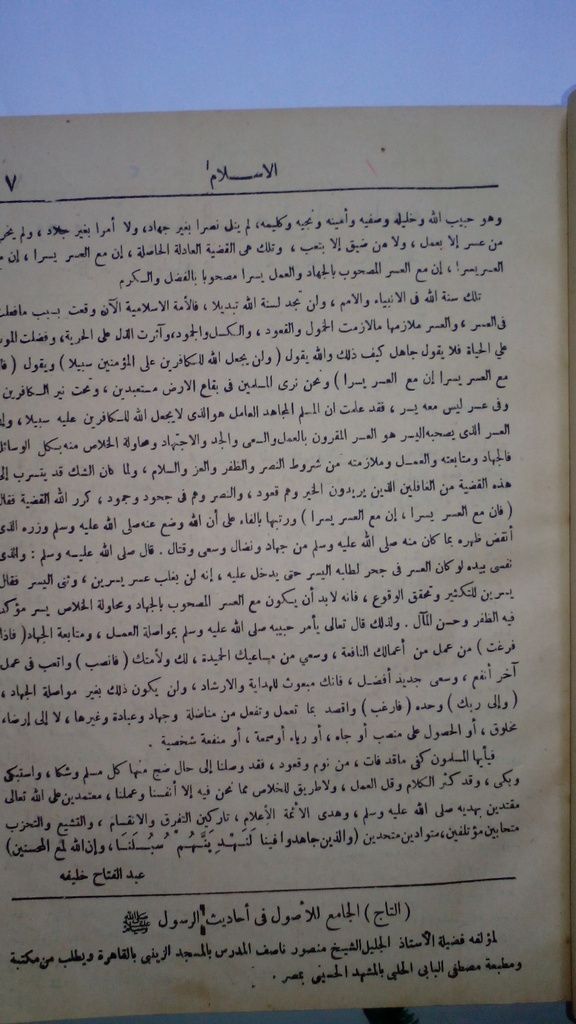 الاسلام
٧
وهو حبيب الله وخليله وصفيه وأمينه ونجيه وكليمه، لم ينل نصرا بغير جهاد، ولا أمرا بغير جلاد ، ولم يخر
من عسر إلا بعمل ، ولا من ضيق إلا بتعب ، وتلك هى القضية العادلة الحاصلة ، إن مع العسر يسرا ، إن م
العسر يسرا ، إن مع العسر المصحوب بالجهاد والعمل يسرا مصحوبا بالفضل والكرم
تلك سنة الله فى الانبياء والامم ، ولن تجد لسنة الله تبديلا ، فالأمة الاسلامية الآن وقعت بسبب مافعلت
فى العسر ، والعسر ملازمها مالازمت الخمول والقعود ، والكسل والجمود، وآثرت الذل على الحرية، وفضلت الموت
على الحياة فلا يقول جاهل كيف ذلك والله يقول ( ولن يجعل الله للكافرين على المؤمنين سبيلا ) ويقول ( فا
مع العسر يسرا إن مع العسر يسرا ) ونحن نرى المسلمين فى بقاع الارض مستعبدين ، وتحت نير الكافرين
وفى عسر ليس معه يسر ، فقد علمت ان المسلم المجاهد العامل هو الذى لايجعل الله للكافرين عليه سبيلا ، وإن
العسر الذى يصحبه اليسر هو العسر المقرون بالعمل والسعى والجد والاجتهاد ومحاولة الخلاص منه بكل الوسائل
فالجهاد ومتابعته والعمل وملازمته من شروط النصر والظفر والعز والسلام ، ولما كان الشك قد يتسرب إلى
هذه القضية من الغافلين الذين يريدون الخير وهم قعود ، والنصر وهم فى جحود وجمود ، كرر الله القضية فقال
( فان مع العسر يسرا ، إن مع العسر يسرا ) ورتبها بالفاء على أن الله وضع عنه صلى الله عليه وسلم وزره الذى
أنقض ظهره بما كان منه صلى الله عليه وسلم من جهاد ونضال وسعى وقتال . قال صلى الله عليه وسلم : والذى
نفسى بيده لو كان العسر فى جحر لطلبه اليسر حتى يدخل عليه ، إنه لن يغلب عسر يسرين ، وثنى اليسر فقال
يسرين للتكثير وتحقق الوقوع ، فانه لابد أن يكون مع العسر المصحوب بالجهاد ومحاولة الخلاص يسر مؤكد
فيه الظفر وحسن المآل . ولذلك قال تعالى يأمر حبيبه صلى الله عليه وسلم بمواصلة العمل ، ومتابعة الجهاد ( فاذا
فرغت ) من عمل من أعمالك النافعة ، وسعي من مساعيك الحميدة ، لك ولأمتك ( فانصب ) واتعب فى عمل
آخر أنفع ، وسعى جديد أفضل ، فانك مبعوث للهداية والارشاد ، ولن يكون ذلك بغير مواصلة الجهاد ،
( وإلى ربك ) وحده ( فارغب ) واقصد بما تعمل وتفعل من مناضلة وجهاد وعبادة وغيرها ، لا إلى إرضاء
مخلوق ، أو الحصول على منصب أو جاه ، أو رياء أو سمعة ، أو منفعة شخصية .
فيأيها المسلمون كفى ماقد فات ، من نوم وقعود ، فقد وصلنا إلى حال ضج منها كل مسلم وشكا ، واستبكى
وبكى ، وقد كثر الكلام وقل العمل ، ولاطريق للخلاص مما نحن فيه إلا أنفسنا وعملنا ، معتمدين على الله تعالى
مقتدين بهديه صلى الله عليه وسلم ، وهدى الأئمة الأعلام ، تاركين التفرق والانقسام ، والتشيع والتحزب
متحابين مؤتلفين ، متوادين متحدين (والذين جاهدوا فينا لَنَهْدِيَنَّهُمْ سُبُلَنَا ، وإن الله لمع المحسنين)
عبد الفتاح خليفه
( التاج ) الجامع للأصول فى أحاديث الرسول ﷺ
لمؤلفه فضيلة الأستاذ الجليل الشيخ منصور ناصف المدرس بالمسجد الزينبى بالقاهرة ويطلب من مكتبة
ومطبعة مصطفى البابى الحلبى بالمشهد الحسينى بمصر .